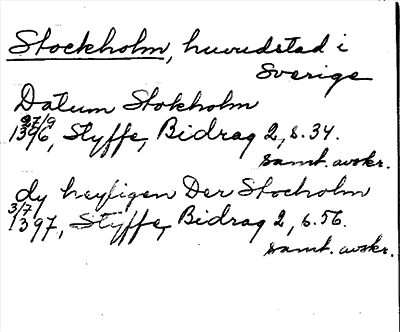 Stockholm, huvudstad i
Sverige
Datum Stokholm
27/9
1396, Styffe, Bidrag 2, s. 34.
samt. avskr.
dy heyligen Der Stocholm
3/7
1397, Styffe, Bidrag 2, s. 56.
samt. avskr.